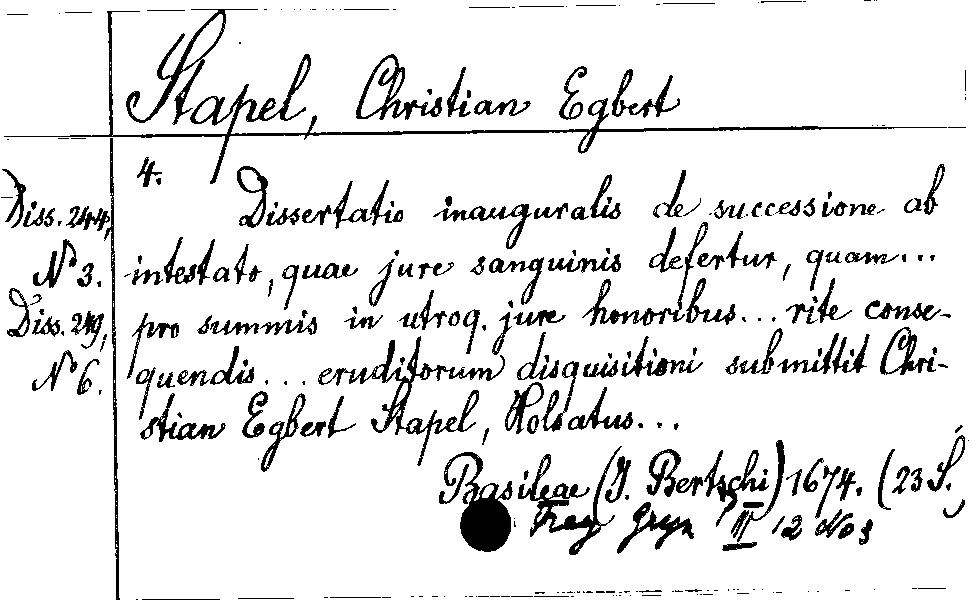 Stapel, Christian Egbert
4.
Diss. 244,
No 3.
Diss. 249,
No 6.
Dissertatio inauguralis de successione ab
intestato, quae jure sanguinis defertur, quam...
pro summis in utroq. jure honoribus... rite conse-
quendis... eruditorum disquisitioni submittit Chri-
stian Egbert Stapel, Holsatus...
Basileae (J. Bertschi) 1674. (23 S.)
Frey Gryn III 12 No 3